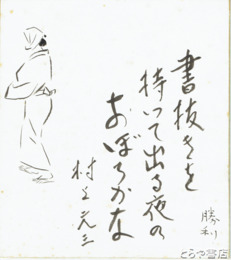 書抜きを
持いて出る夜の
おぼろかな
村上元三
勝利
とらや書店